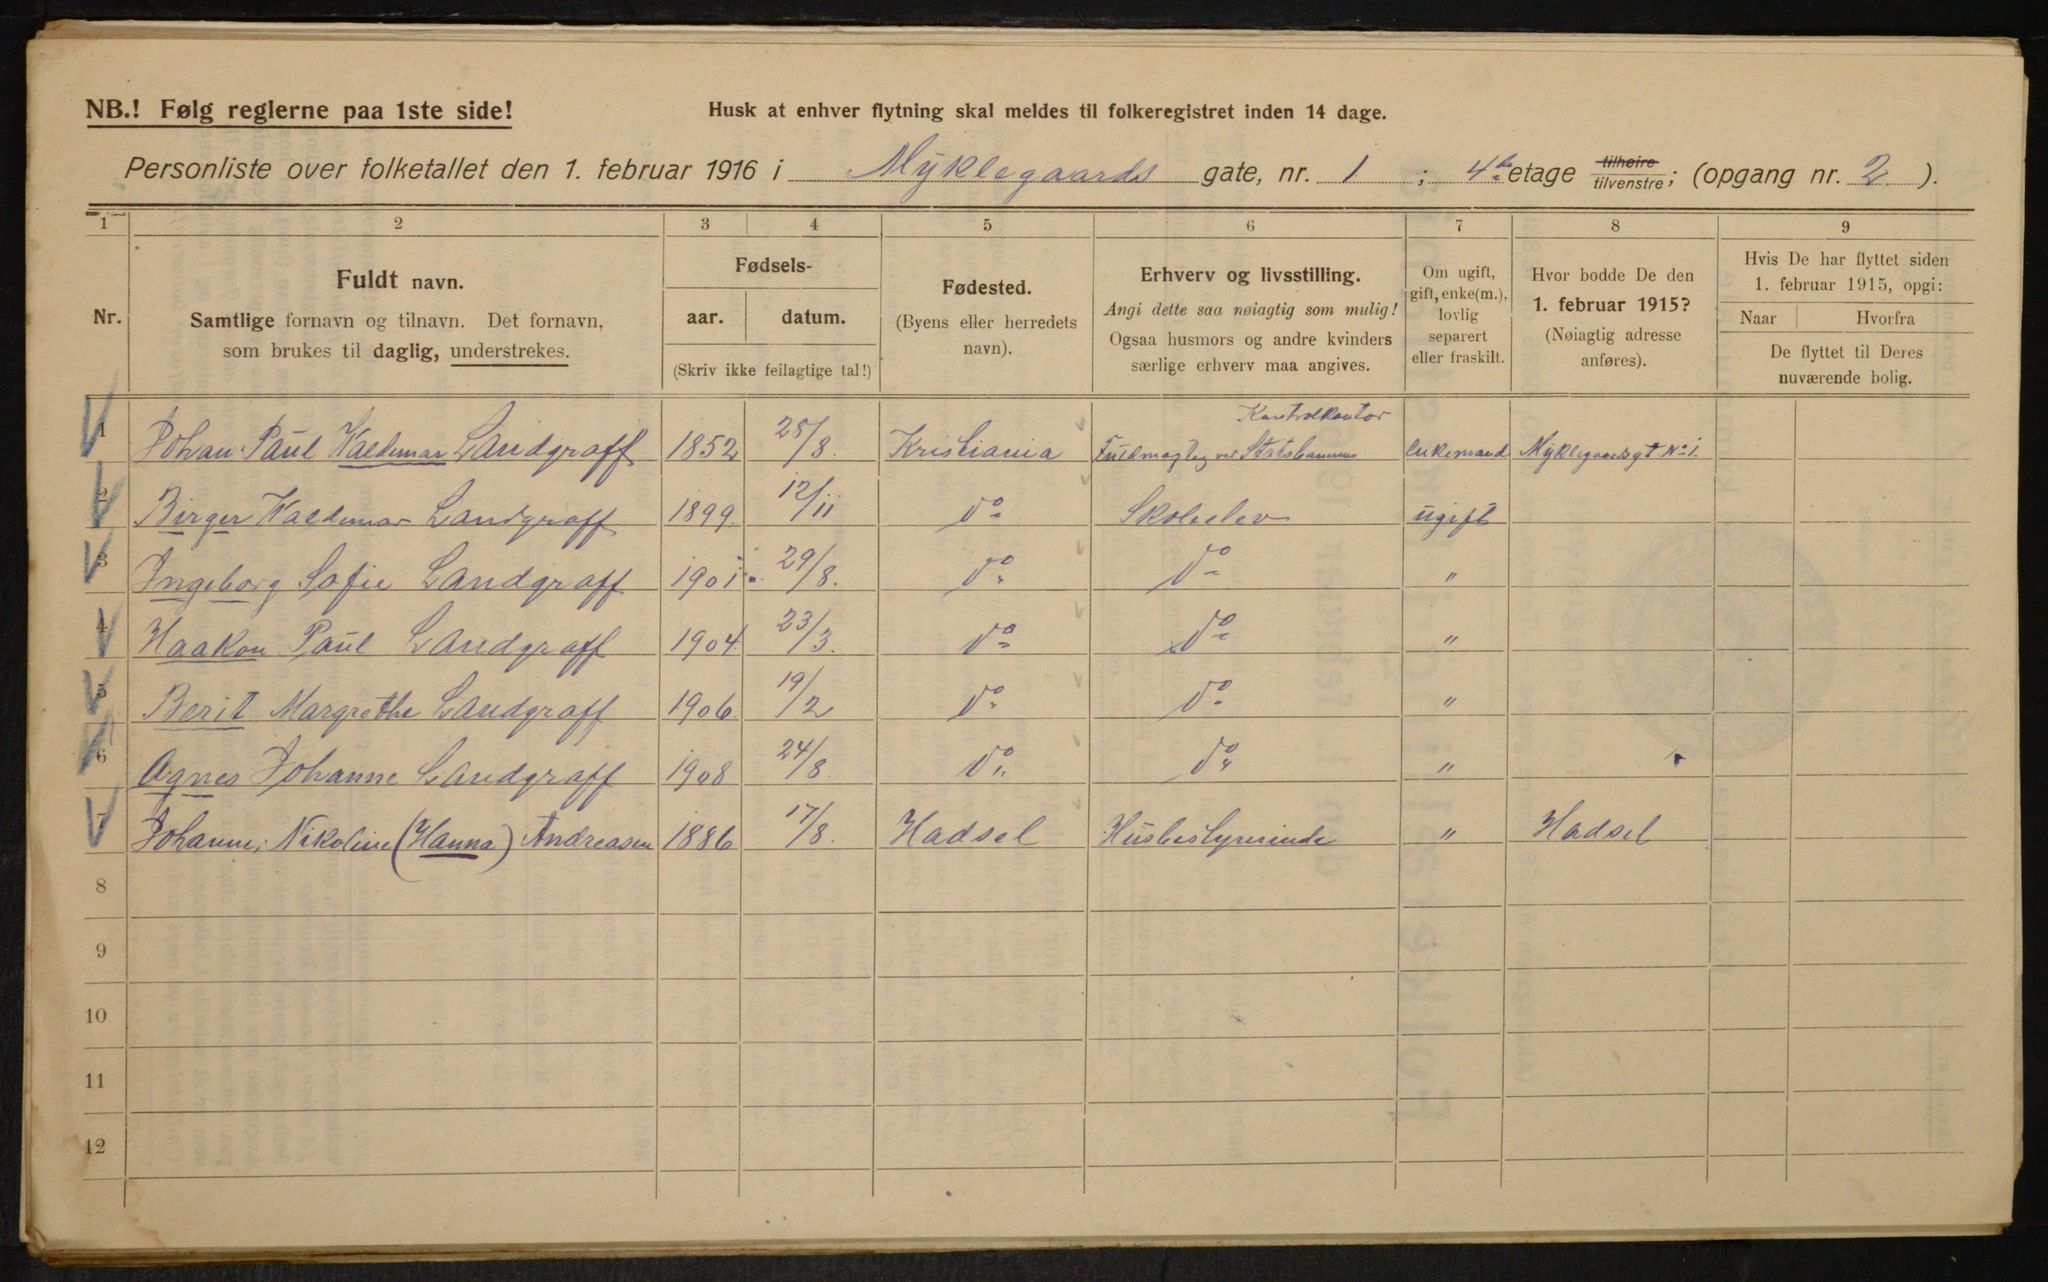 NB.! Følg reglerne paa 1ste side!
Husk at enhver flytning skal meldes til folkeregistret inden 14 dage.
Personliste over folketallet den 1. februar 1916 i Myklegaards gate, nr. 1 ; 4de etage tilhøire/tilvenstre; (opgang nr. 2).
1 2 3 4 5 6 7 8 9
Nr.
Fuldt navn.
Samtlige fornavn og tilnavn. Det fornavn,
som brukes til daglig, understrekes.
Fødsels-
aar. datum.
(Skriv ikke feilagtige tal!)
Fødested.
(Byens eller herredets
navn).
Erhverv og livsstilling.
Angi dette saa nøiagtig som mulig!
Ogsaa husmors og andre kvinders
særlige erhverv maa angives.
Om ugift,
gift, enke(m.),
lovlig
separert
eller fraskilt.
Hvor bodde De den
1. februar 1915?
(Nøiagtig adresse
anføres).
Hvis De har flyttet siden
1. februar 1915, opgi:
Naar Hvorfra
De flyttet til Deres
nuværende bolig.
Kontrolkontor
1 Johan Paul Waldemar Landgraff 1852 28/8. Kristiania Fuldmægtig ved Statsbanernes Enkemand Myklegaardsgt No 1.
2 Birger Waldemar Landgraff 1899 12/11 do Skoleelev ugift
3 Ingeborg Sofie Landgraff 1901. 29/8. do do "
4 Haakon Paul Landgraff 1904 23/3. do do "
5 Berit Margrethe Landgraff 1906 19/2 do do "
6 Agnes Johanne Landgraff 1908 24/8. do do "
7 Johanne Nikoline (Hanna) Andreasen 1886 17/8. Hadsel Husbestyrerinde " Hadsel
8
9
10
11
12